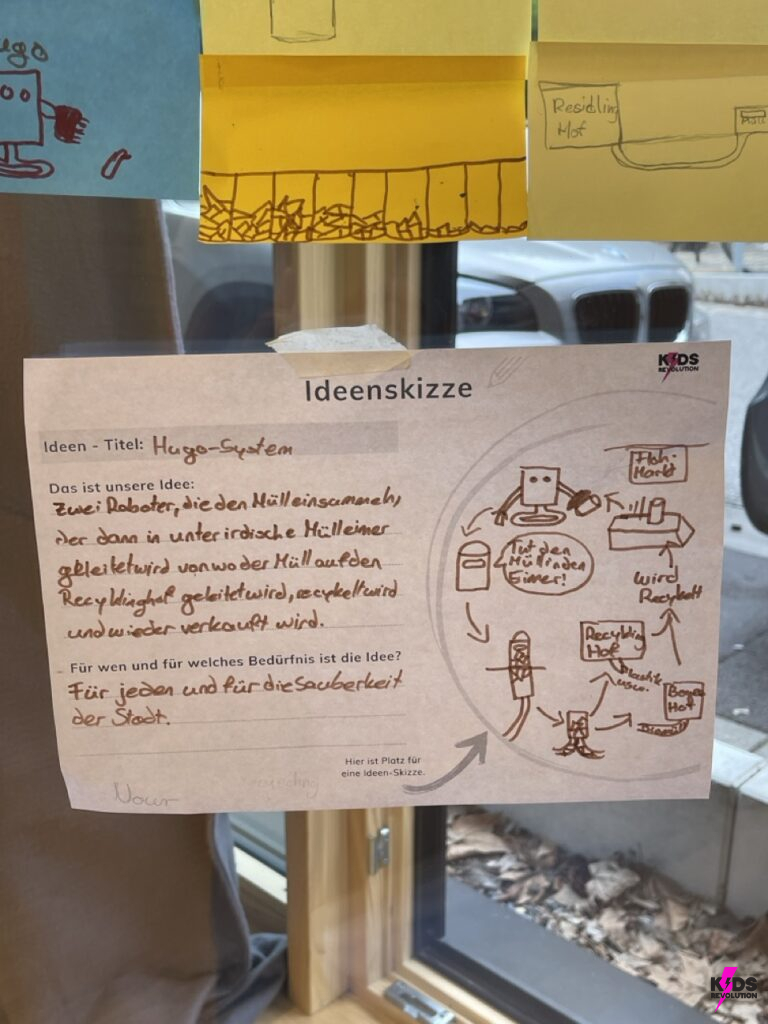 ugo
Residling
Hof
KIDS
REVOLUTION
Ideenskizze
Ideen - Titel: Hugo-System
Das ist unsere Idee:
Zwei Roboter, die den Müll einsammeln,
der dann in unterirdische Mülleimer
geleitet wird von wo der Müll auf den
Recyklinghof geleitet wird, recykelt wird
und wieder verkauft wird.
Für wen und für welches Bedürfnis ist die Idee?
Für jeden und für die Sauberkeit
der Stadt.
Hier ist Platz für
eine Ideen-Skizze.
Nour
Floh-
Markt
Tut den
Müll in den
Eimer!
wird
Recykelt
Recykling
Hof
Plastik
usw.
Hof
Biomüll
KIDS
REVOLUTION